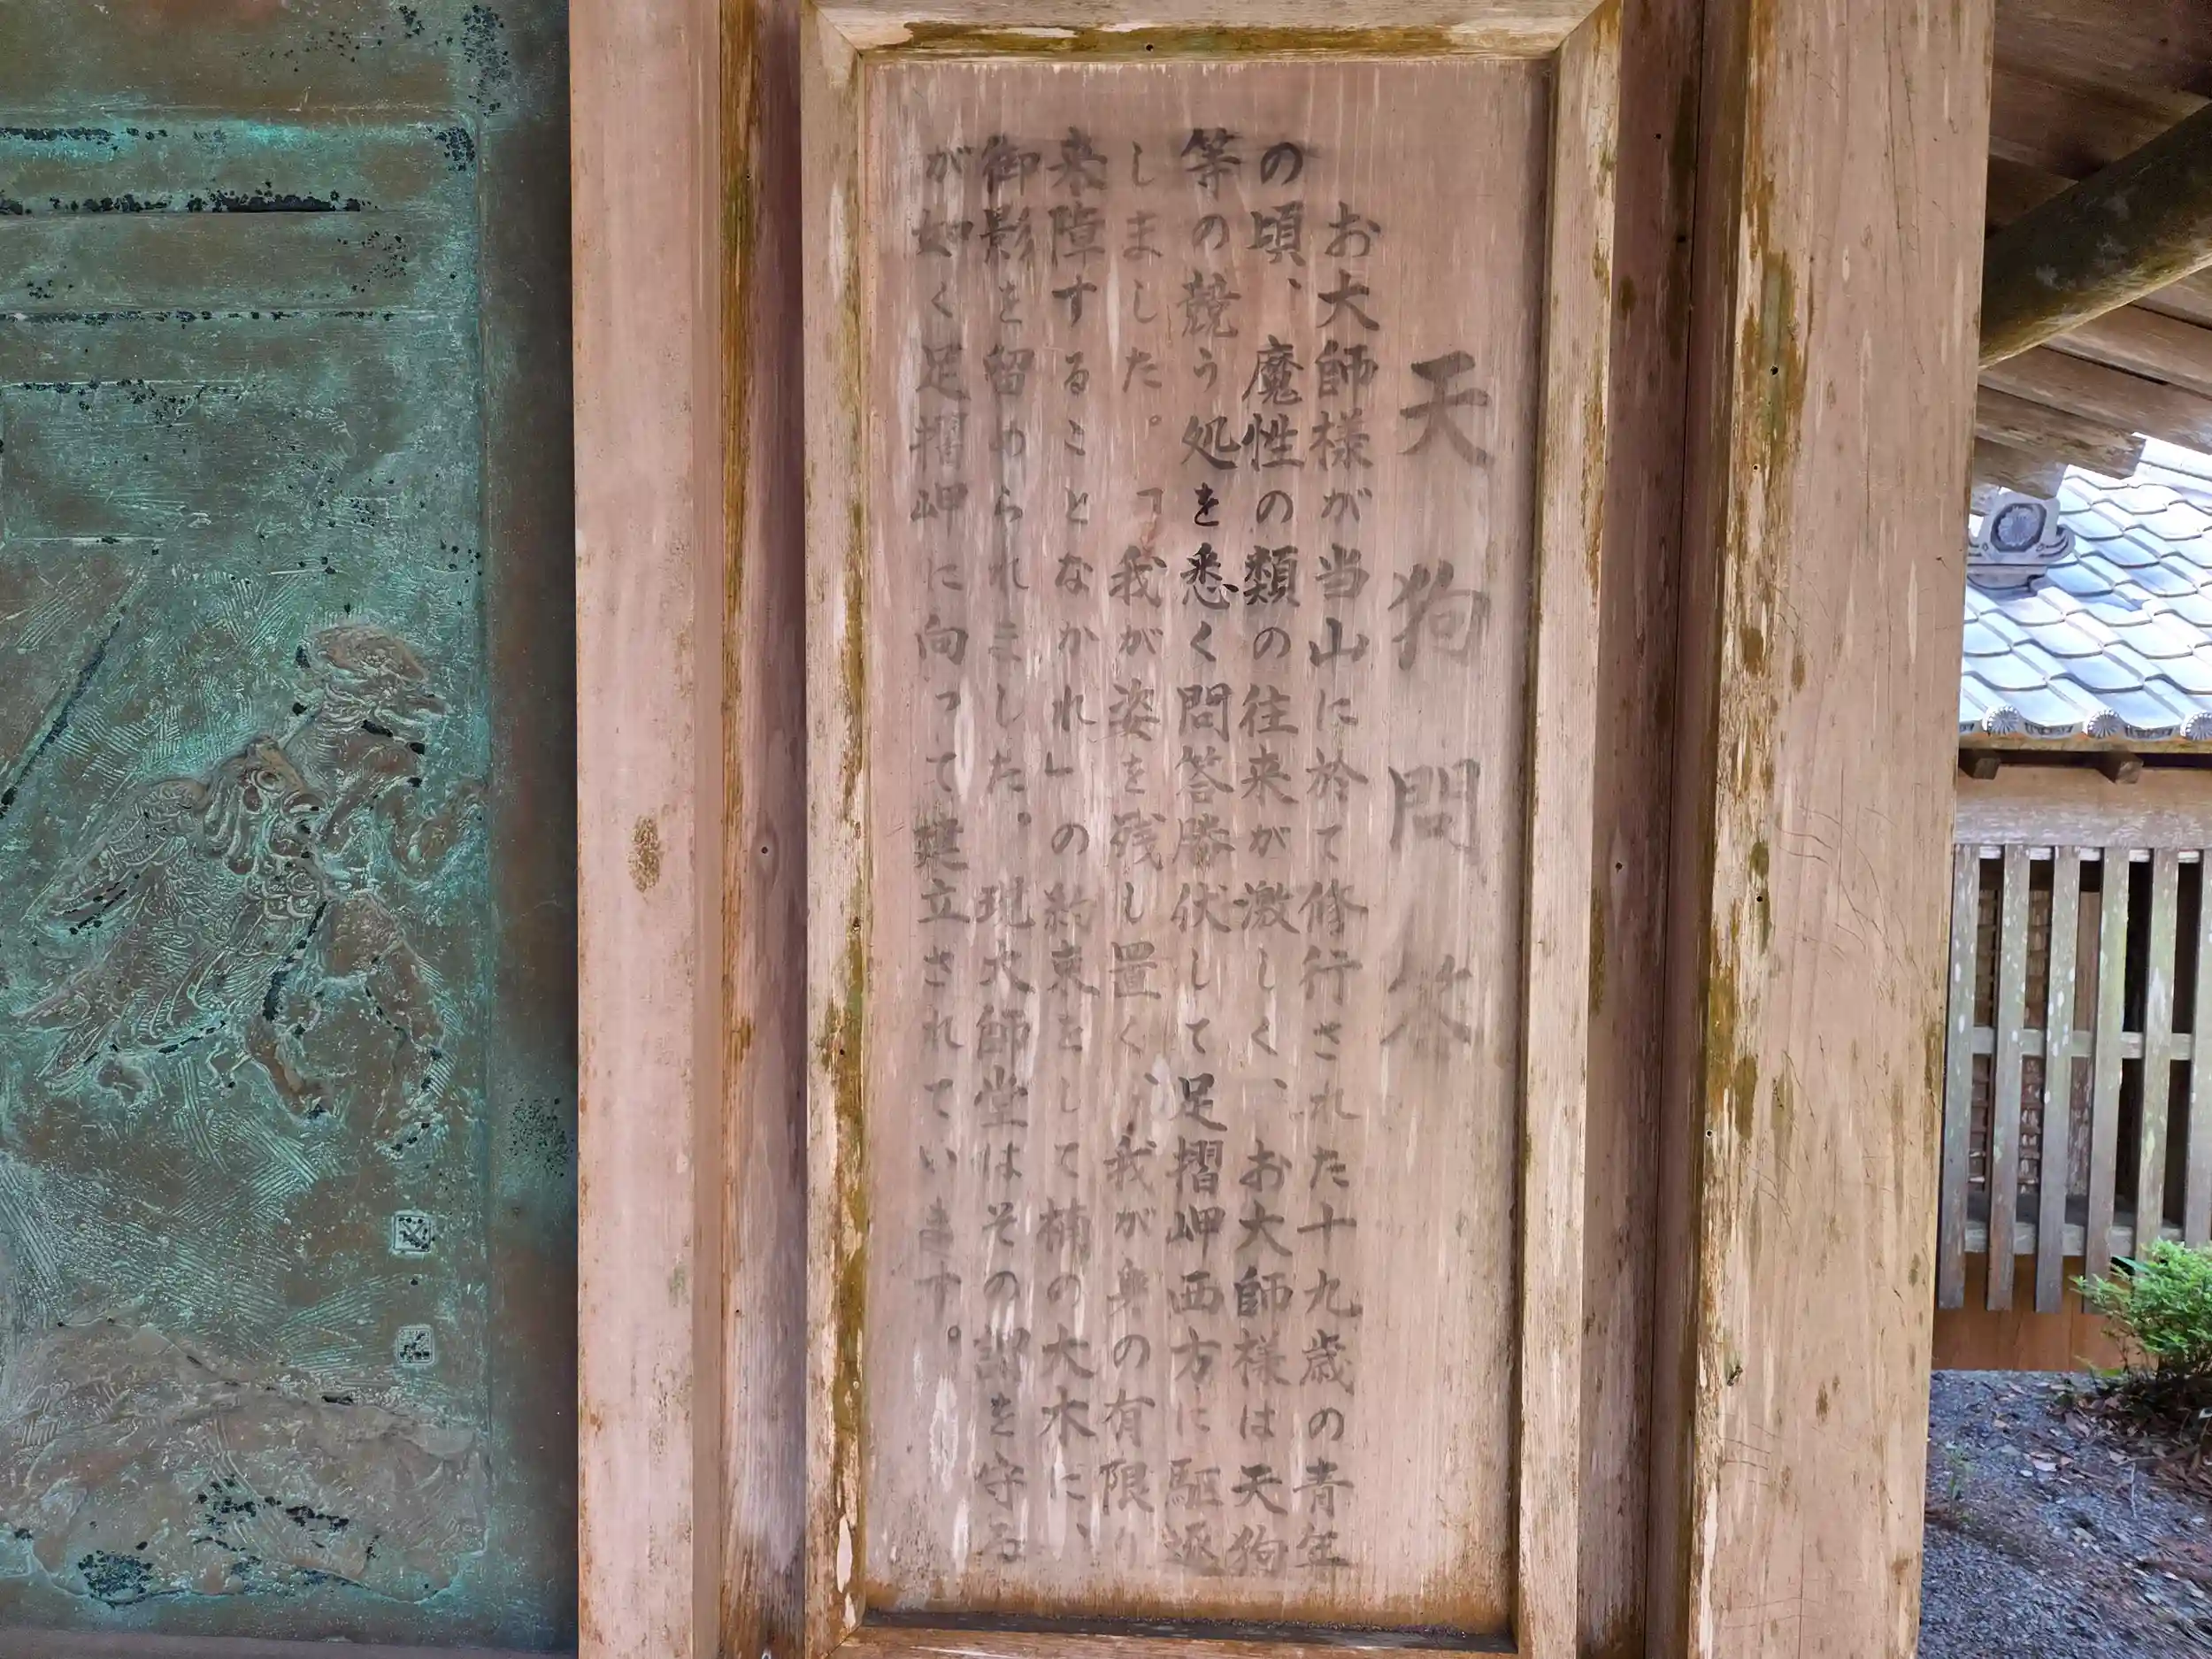 天狗問答
お大師様が当山に於て修行された十九歳の青年
の頃、魔性の類の往来が激しく、お大師様は天狗
等の競う処を悉く問答勝伏して足摺岬西方に駆逐
しました。「我が姿を残し置く、我が身の有限り
来障することなかれ」の約束をして楠の大木に、
御影を留められました。現大師堂はその謂を守る
が如く足摺岬に向って建立されています。